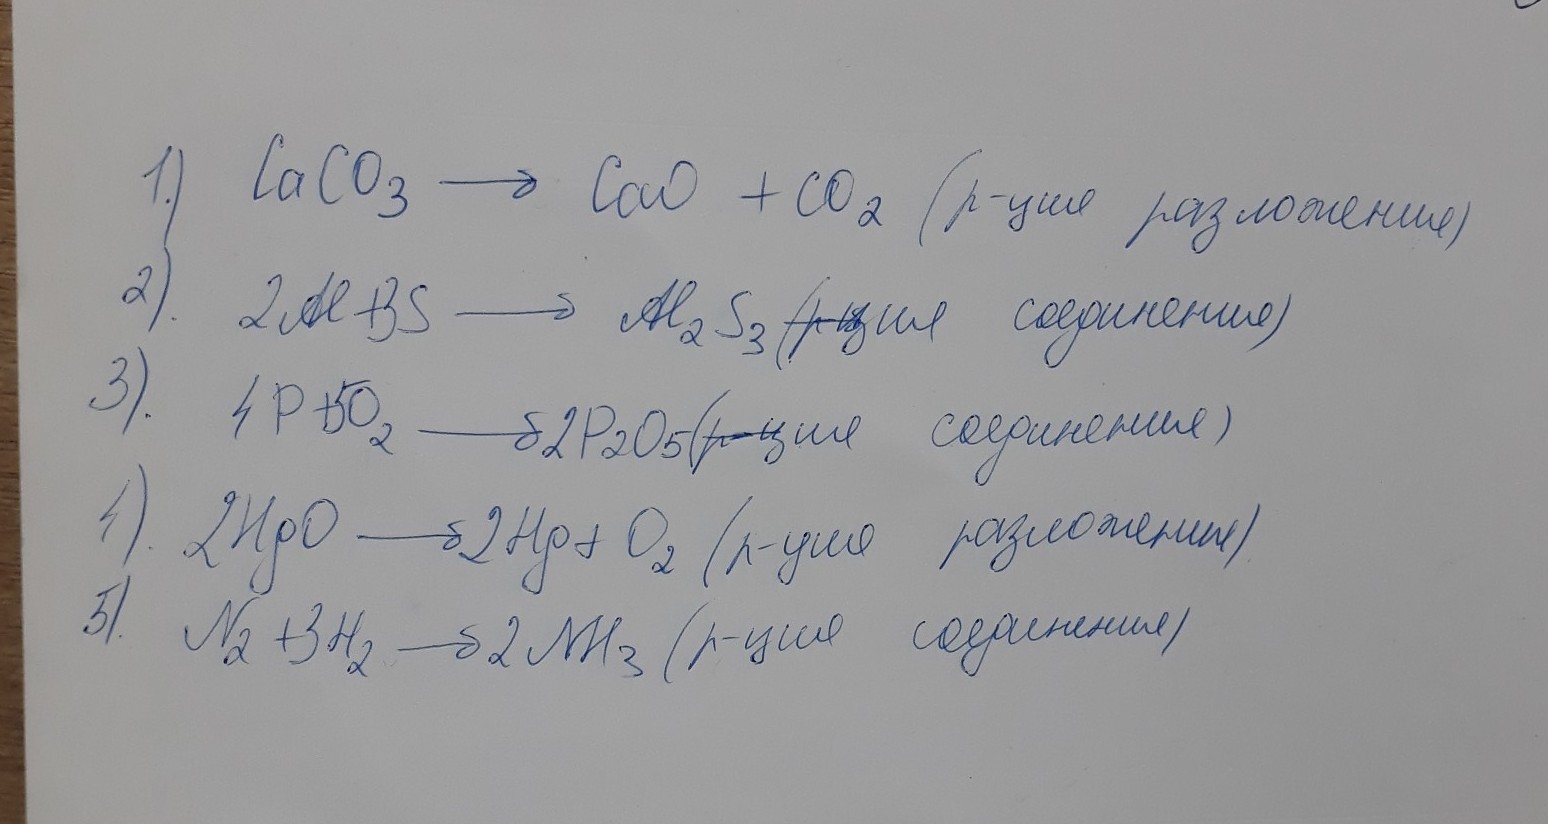 1.) CaCO₃ → CaO + CO₂ (р-ция разложения)
2). 2Al+3S → Al₂S₃ (р-ция соединения)
3). 4P+5O₂ → 2P₂O₅ (р-ция соединения)
4). 2HgO → 2Hg + O₂ (р-ция разложения)
5). N₂ +3H₂ → 2NH₃ (р-ция соединения)